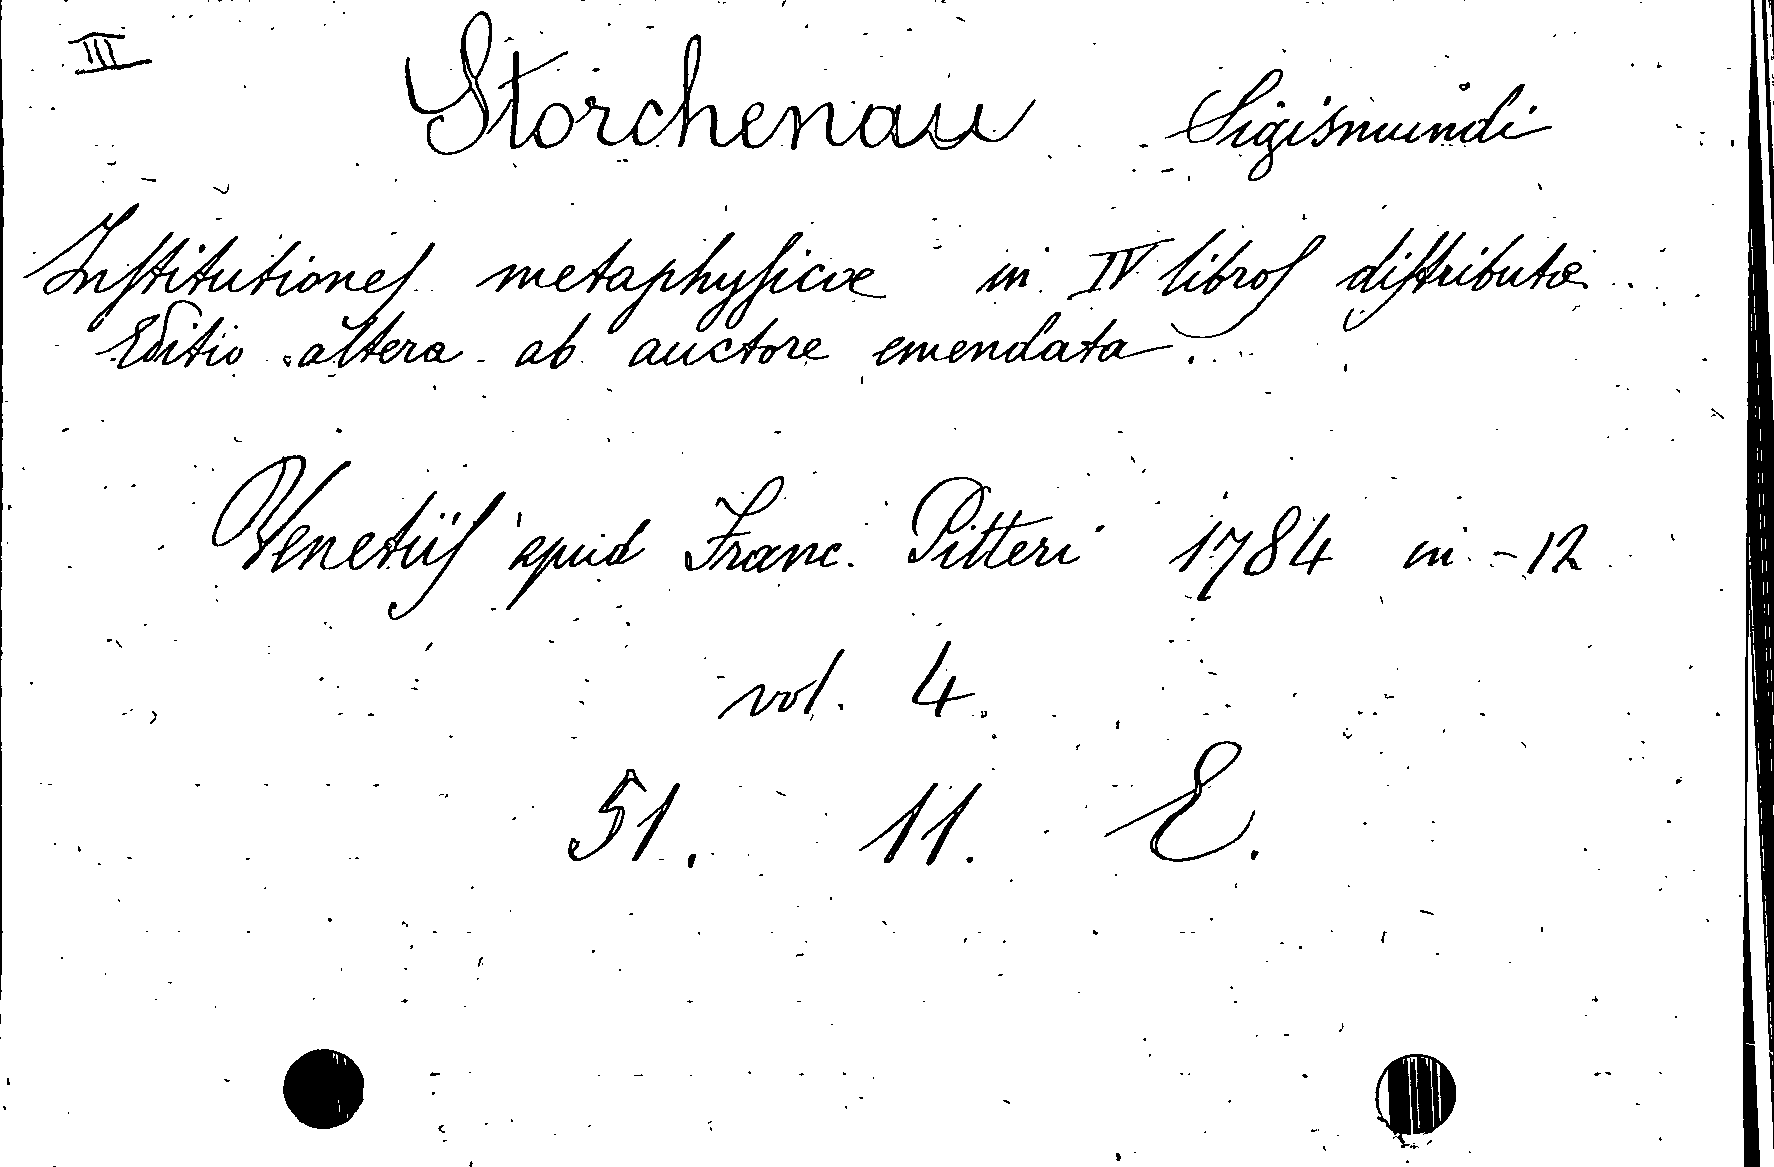 III Storchenau Sigismundi
Institutiones metaphysicæ in IV libros distributæ
Editio altera ab auctore emendata.
Venetiis apud Franc. Pitteri 1784 in-12
vol. 4.
51. 11. E.